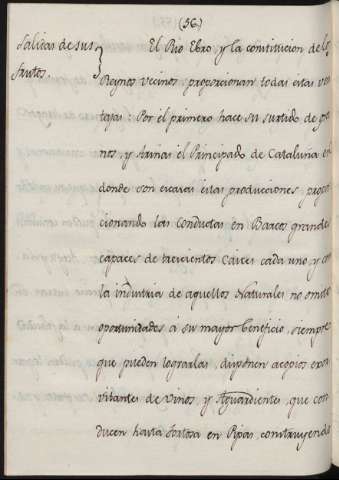 (56)
Salidas de sus
frutos.
El Rio Ebro, y la constitucion de los
Reynos vecinos, proporcionan todas estas ven
tajas: Por el primero hace su surtido de gra
nos, y Arinas el Principado de Cataluña en
donde son escasas estas producciones propor
cionando las conductas en Barcos grandes
capaces de trescientos Caices cada uno y con
la industria de aquellos Naturales no omite
oportunidades á su mayor beneficio, siempre
que pueden lograrlas, disponen acopios exor
vitantes de Vinos, y Aguardientes, que con
ducen hasta Tortosa en Pipas, construyendo